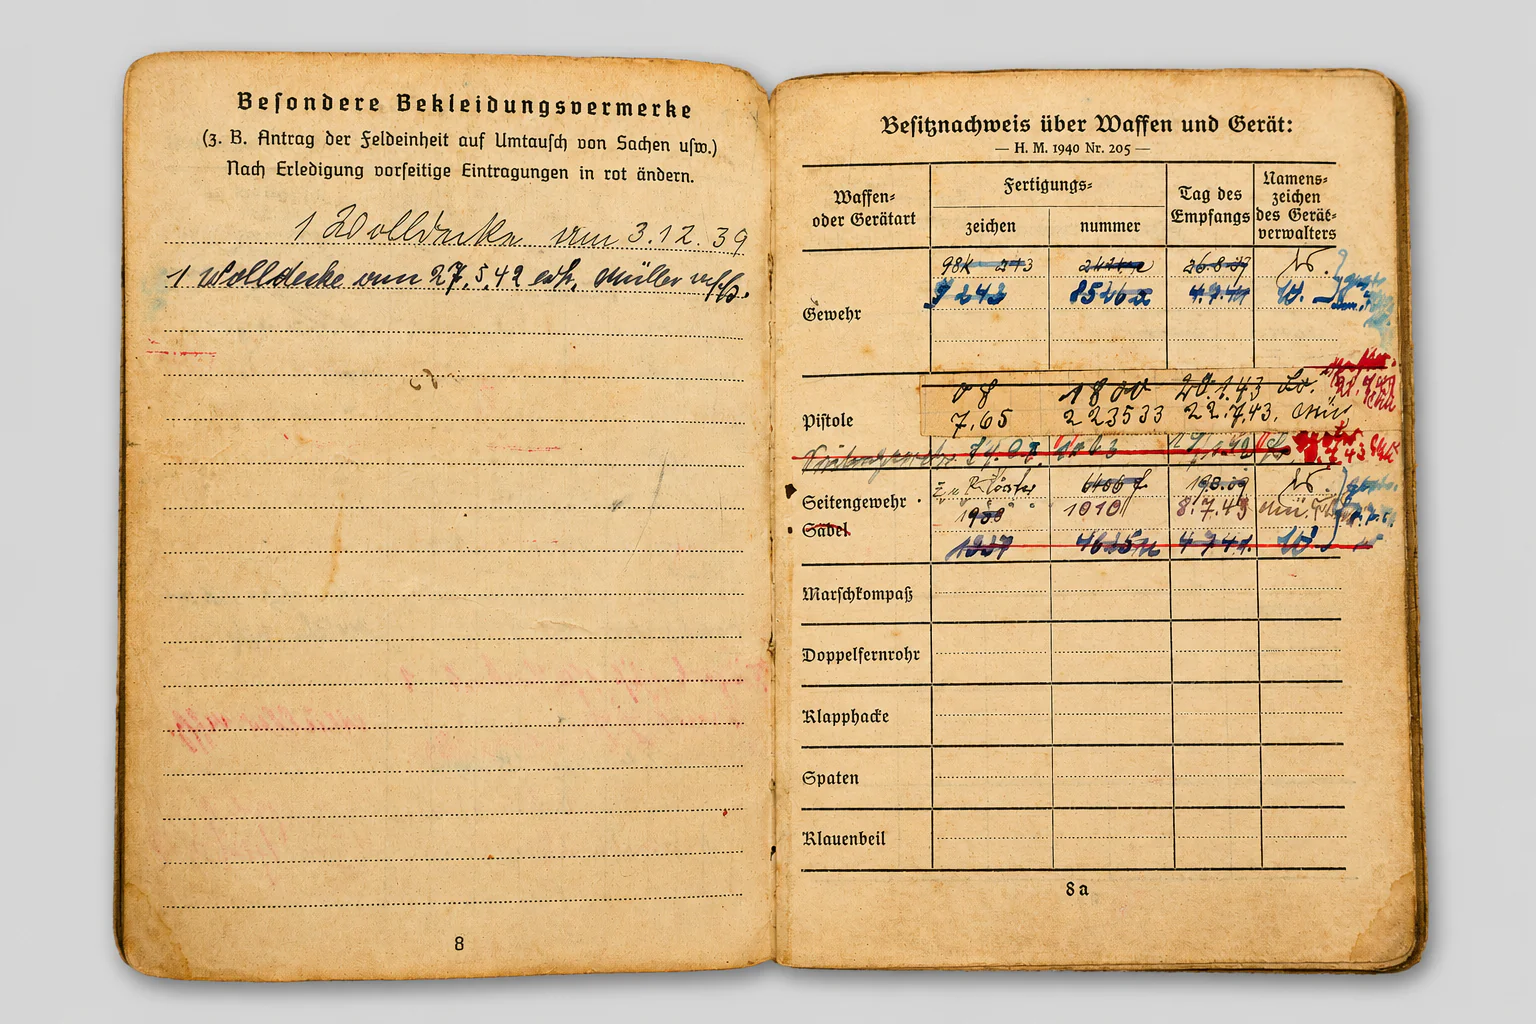 Besondere Bekleidungsvermerke
(z. B. Antrag der Feldeinheit auf Umtausch von Sachen usw.)
Nach Erledigung vorseitige Eintragungen in rot ändern.
1 Wolldecke am 3.12.39
1 Wolldecke am 27.5.42 erh. Müller Uffz.
8
Besitznachweis über Waffen und Gerät:
— H. M. 1940 Nr. 205 —
Waffen- oder Gerätart
Fertigungs-
zeichen
nummer
Tag des Empfangs
Namens- zeichen des Gerät- verwalters
Gewehr
98k 243
243 8526a 4.7.41
Pistole
08 1800 20.1.43
7.65 223533 22.7.43.
Seitengewehr
1010 8.7.43
Säbel
1937 4625 4.7.41.
Marschkompaß
Doppelfernrohr
Klapphacke
Spaten
Klauenbeil
8a